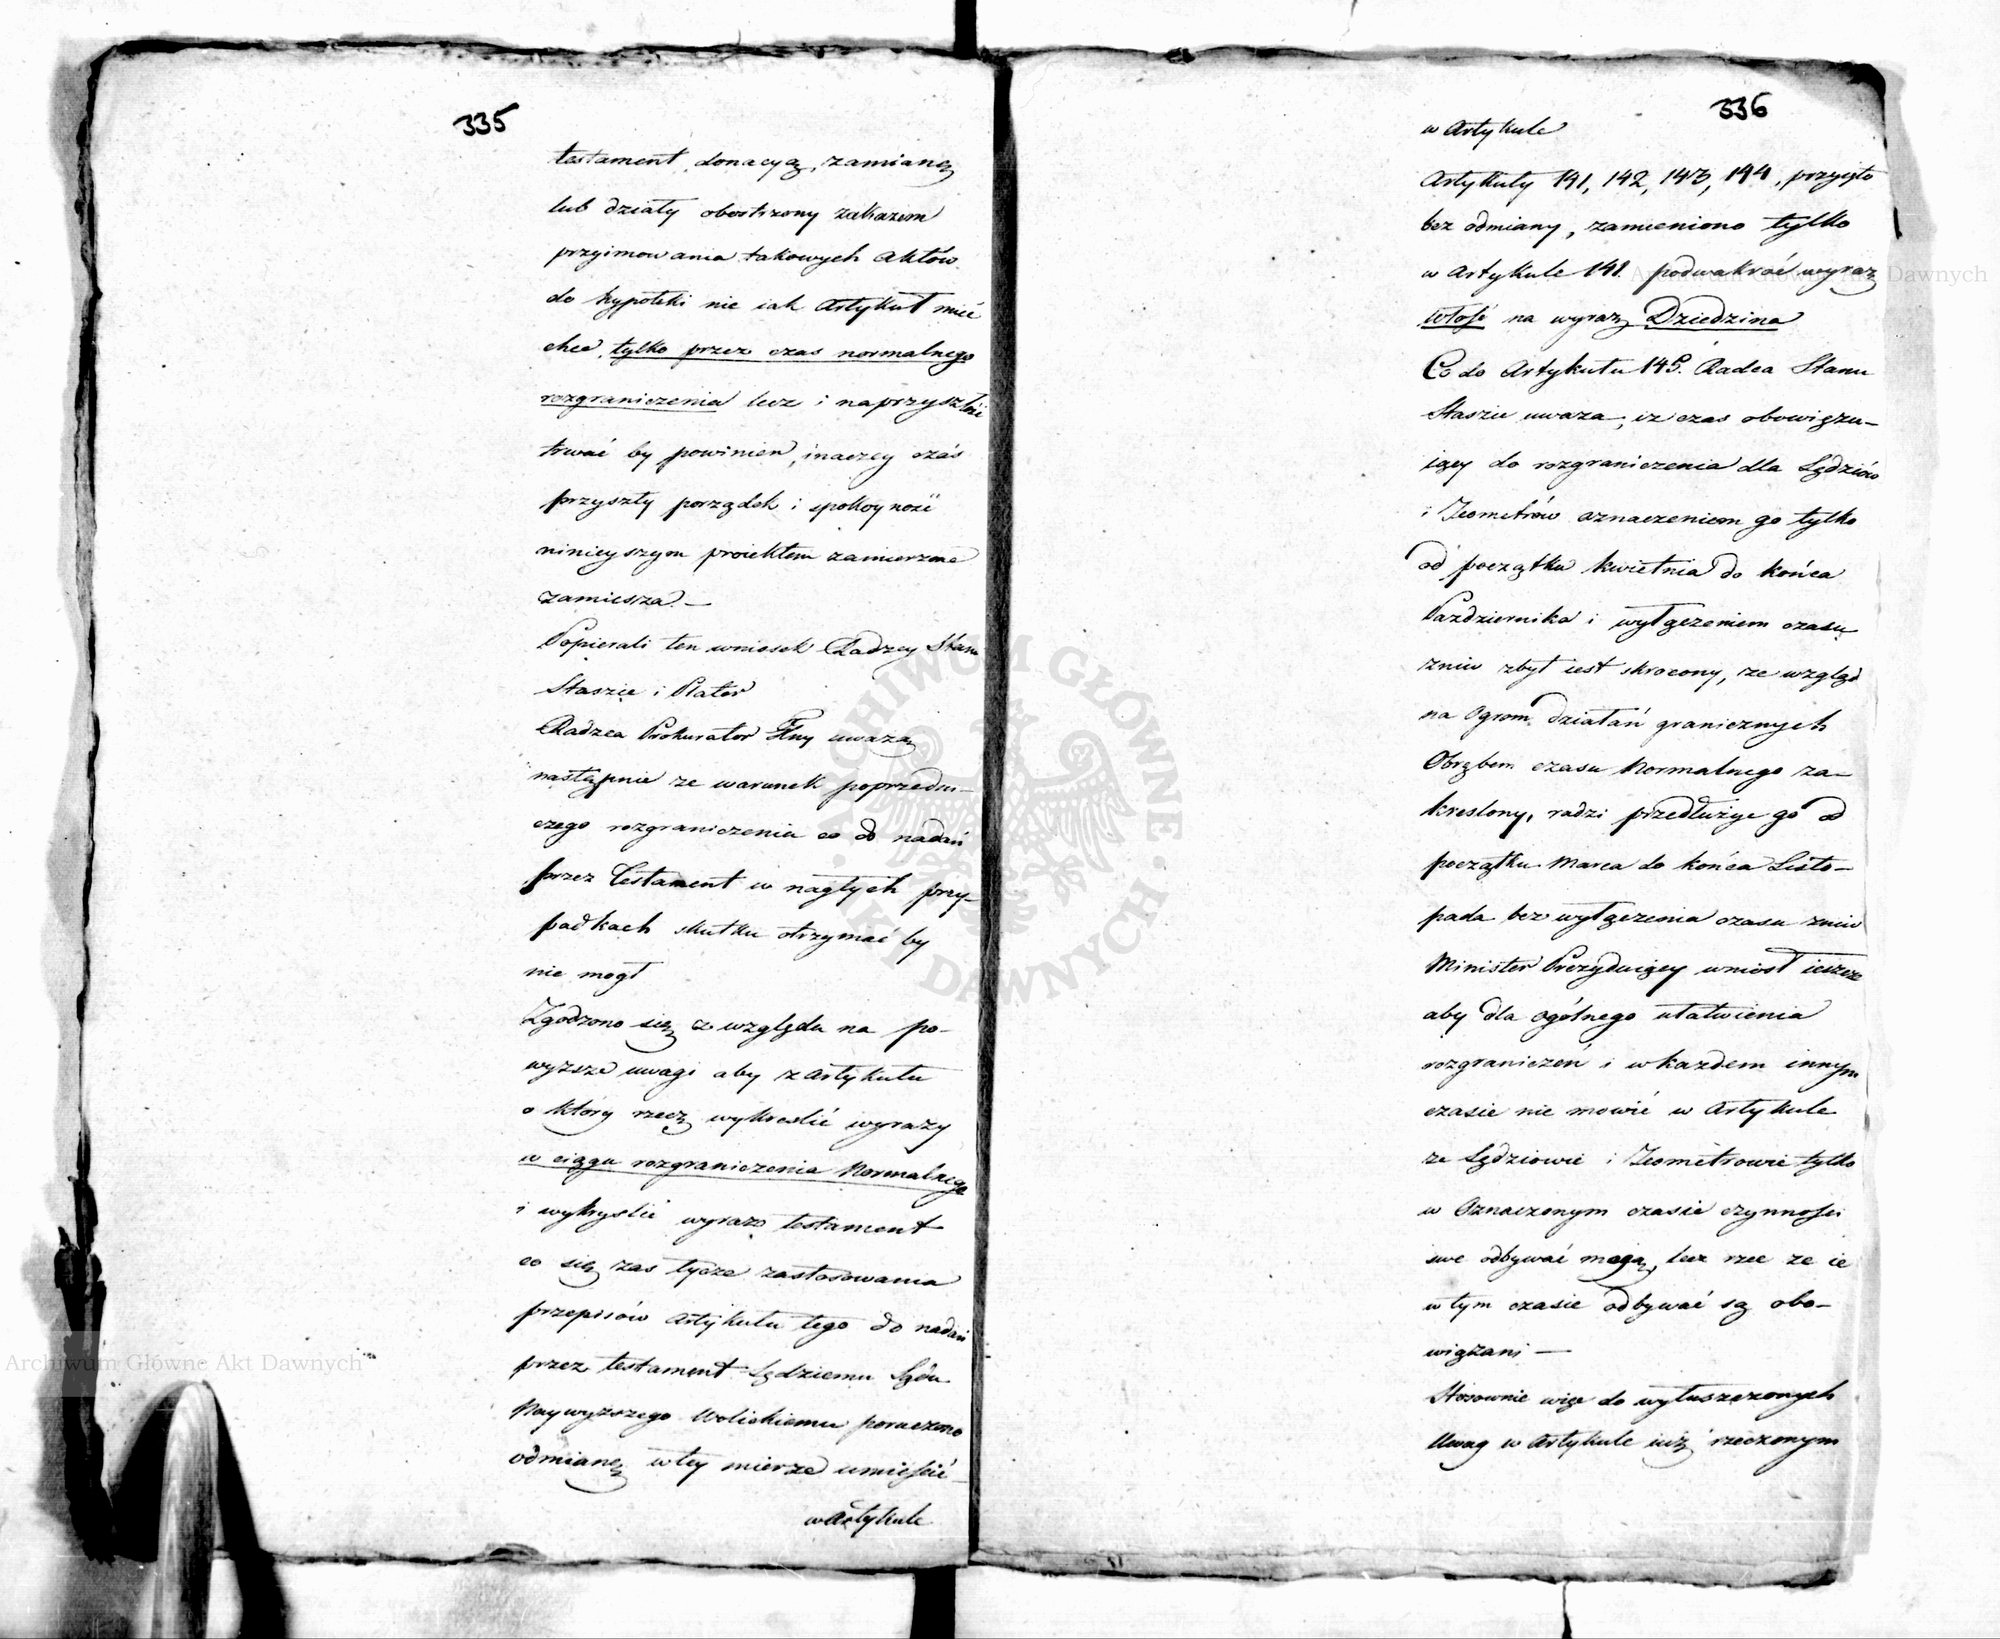 335
testament, donacyą, zamianę
lub działy obostrzony zakazem
przyimowania takowych Aktów
do hypoteki nie iak Artykuł mieć
chce, tylko przez czas normalnego
rozgraniczenia lecz i naprzyszłość
trwać by powinien, inaczey czas
przyszły porządek i spokoyność
ninieyszym proiektem zamierzone
zamiesza. —
Popierali ten wniosek Radzcy Stanu
Staszic i Plater
Radzca Prokurator Glny uważa
następnie że warunek poprzedni-
czego rozgraniczenia co do nadań
przez Testament w nagłych przy-
padkach skutku otrzymać by
nie mogł
Zgodzono się z względu na po-
wyższe uwagi aby z Artykułu
o który rzecz wykreslić wyrazy
w ciągu rozgraniczenia Normalnego
i wykryslić wyraz testament
co się zas tycze zastosowania
przepisów Artykułu tego do nadań
przez testament Sędziemu Sądu
Naywyższego Wolickiemu poruczono
odmianę w tey mierze umieścić
w Artykule
336
w Artykule
Artykuły 141, 142, 143, 144, przyięto
bez odmiany, zamieniono tylko
w Artykule 141. podwakroć wyraz
Włość na wyraz Dziedzina
Co do Artykułu 145. Radca Stanu
Staszic uważa, iż czas obowiązu-
iący do rozgraniczenia dla Sędziów
i Jeometrów oznaczeniem go tylko
od początku kwietnia do końca
Pazdziernika i wyłączeniem czasu
żniw zbyt iest skrocony, ze względ
na Ogrom działań granicznych
Obrębem czasu Normalnego za-
kreslony, radzi przedłużyc go od
początku Marca do końca Listo-
pada bez wyłączenia czasu żniw
Minister Prezyduiący wniosł ieszcze
aby dla ogólnego ułatwienia
rozgraniczeń i w kazdem innym
czasie nie mowić w Artykule
że Sędziowie i Jeometrowie tylko
w Oznaczonym czasie czynności
swe odbywać mogą, lecz rzec że ie
w tym czasie odbywać są obo-
wiązani —
Stosownie więc do wyłuszczonych
Uwag w Artykule iuż rzeczonym
ARCHIWUM GŁÓWNE AKT DAWNYCH
Archiwum Główne Akt Dawnych
Archiwum Główne Akt Dawnych